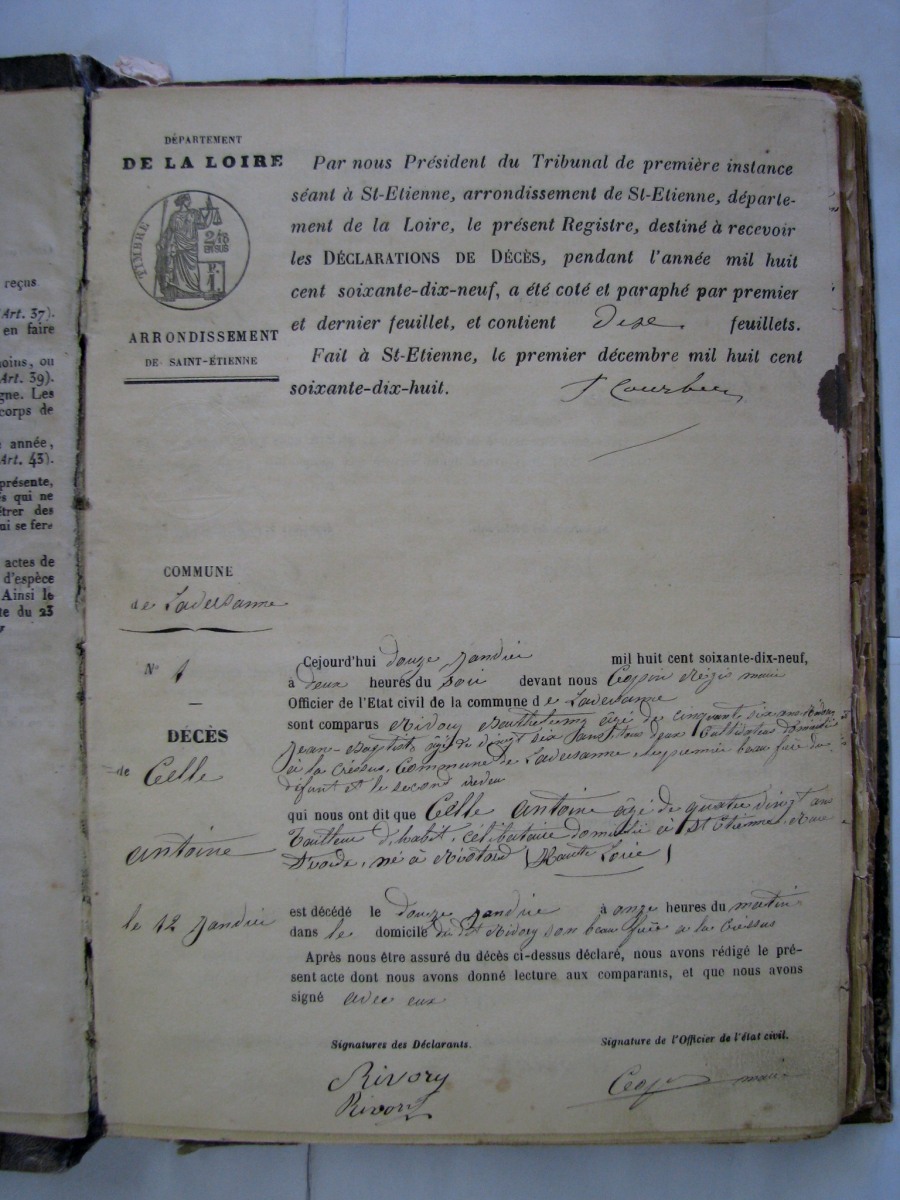 reçus
Art. 37).
en faire
moins, ou
Art. 39).
gne. Les
corps de
année,
Art. 43).
présente,
s qui ne
étrer des
ui se fere
actes de
d'espèce
Ainsi le
te du 23
DÉPARTEMENT
DE LA LOIRE
TIMBRE
2/10
EN SUS
P. 1.
ARRONDISSEMENT
DE SAINT-ÉTIENNE
Par nous Président du Tribunal de première instance
séant à St-Etienne, arrondissement de St-Etienne, départe-
ment de la Loire, le présent Registre, destiné à recevoir
les DÉCLARATIONS DE DÉCÈS, pendant l'année mil huit
cent soixante-dix-neuf, a été coté et paraphé par premier
et dernier feuillet, et contient feuillets.
Fait à St-Etienne, le premier décembre mil huit cent
soixante-dix-huit.
COMMUNE
de Laversanne
N° 1
DÉCÈS
de Celle
antoine
le 12 Janvier
Cejourd'hui douze Janvier mil huit cent soixante-dix-neuf,
à deux heures du Soir devant nous Cognin Régis maire
Officier de l'Etat civil de la commune de Laversanne
sont comparus Rivory Barthelemy âgé de cinquante six ans Rivory
Jean-Baptiste âgé de vingt six ans tous deux Cultivateurs domiciliés
à la Créssus, Commune de Laversanne, le premier beau frère du
défunt et le second neveu
qui nous ont dit que Celle Antoine âgé de quatre vingt ans
Tailleur d'habit, célibataire domicilié à St Etienne, Rue
né à Riotord (Haute Loire)
est décédé le douze Janvier à onze heures du matin
dans le domicile du dt Rivory son beau frère à la Créssus
Après nous être assuré du décès ci-dessus déclaré, nous avons rédigé le pré-
sent acte dont nous avons donné lecture aux comparants, et que nous avons
signé avec eux
Signatures des Déclarants.
Signature de l'Officier de l'état civil.
Rivory
Rivory
maire